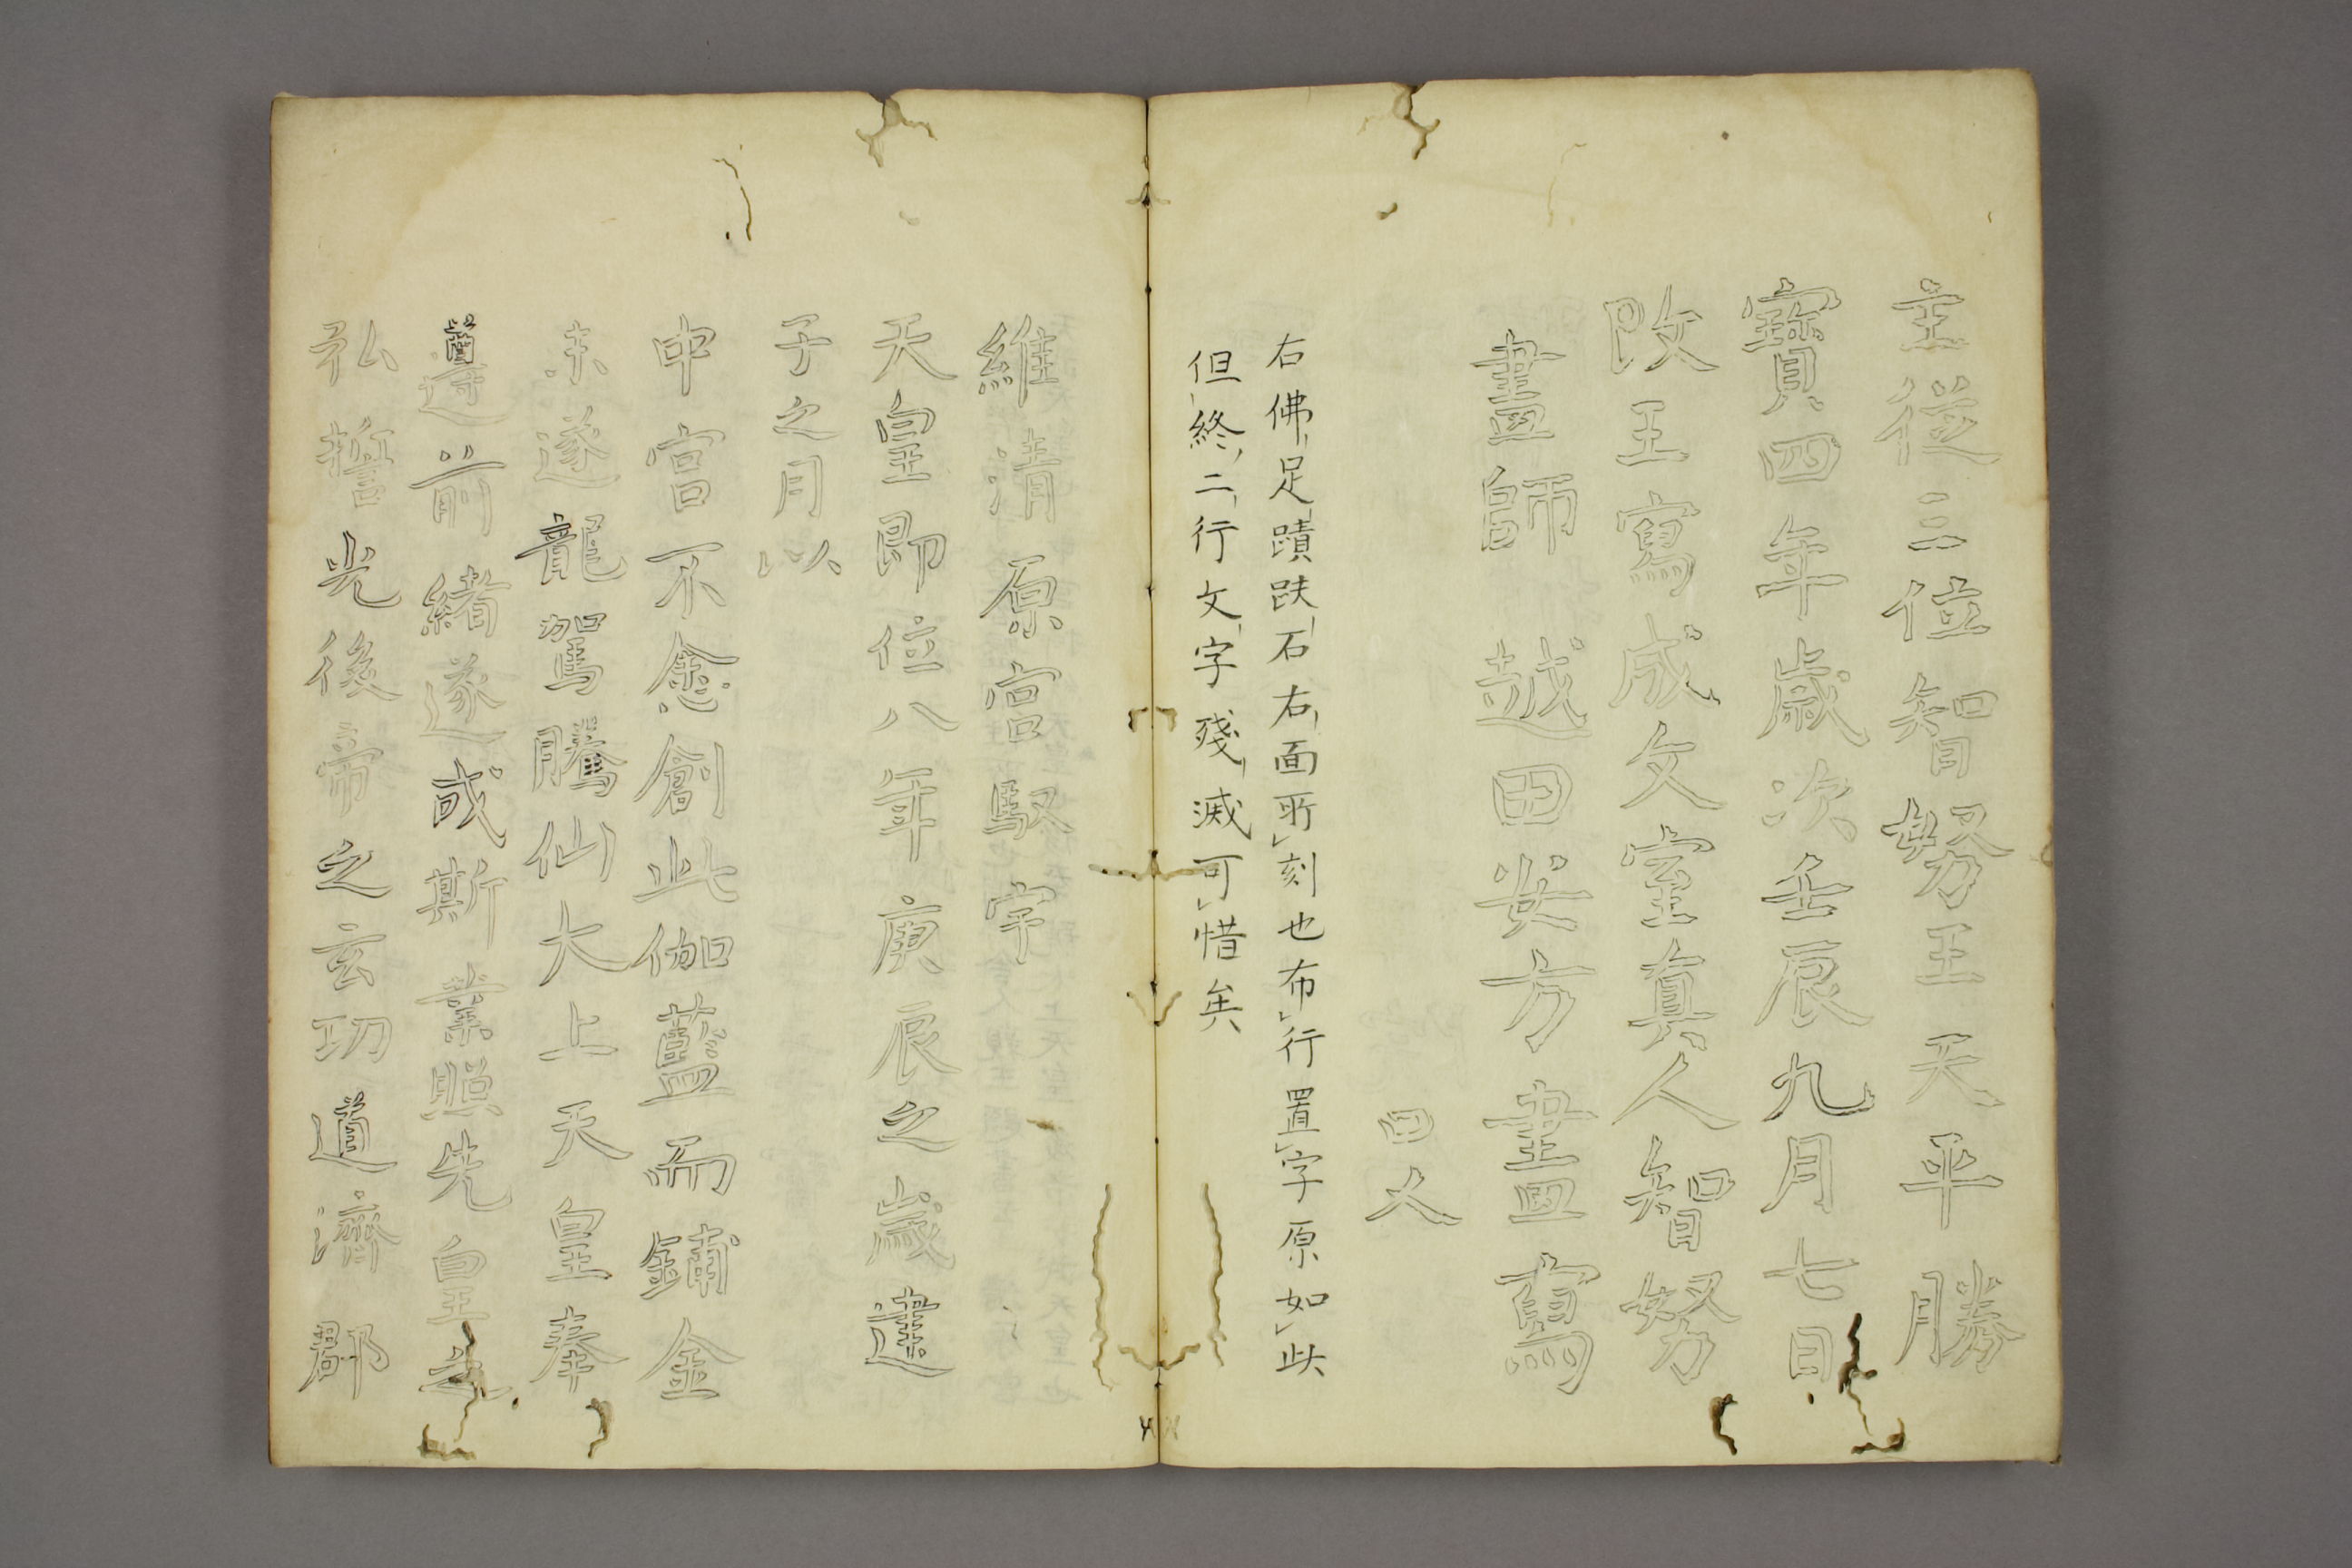 主從三位智努王天平勝
寶四年歲次壬辰九月七日
改王寫成文室真人智努
畫師　越田安方畫寫
四人
右佛足蹟趺石右面所刻也布行置字原如此
但終二行文字殘滅可惜矣
維清原宮馭宇
天皇即位八年庚辰之歲建
子之月以
中宮不悆創此伽藍而鋪金
未遂龍駕騰仙大上天皇奉
遵前緒遂成斯業照先皇之
弘誓光後帝之玄功道濟郡